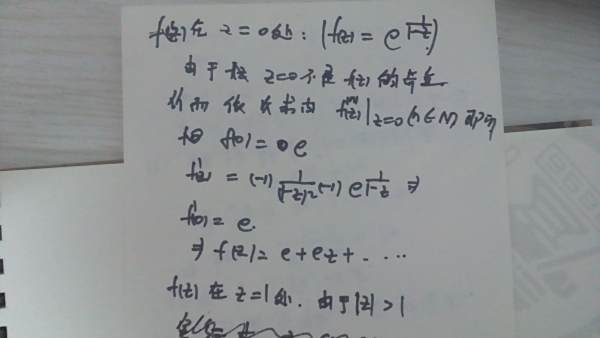 f(z)在 z=0处: (f(z) = e^{\frac{1}{1-z}})
由于 z=0不是f(z)的奇点
从而依次求出 f^{(n)}(z)|_{z=0} (n∈N) 即可
f(0) = e
f'(z) = (-1) \frac{1}{(1-z)^2} (-1) e^{\frac{1}{1-z}} ⇒
f'(0) = e.
⇒ f(z) = e+ez+.....
f(z) 在 z=1处. 由于|z|>1